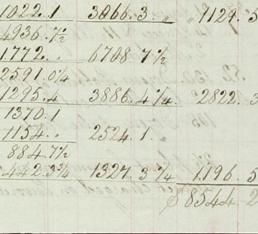 1022.1 3066.3 1129.5
4936.7½
1772.. 6708 7½
2591.0¼
1295.4 3886.4¼ 2822.3
1370.1
1154.. 2524.1.
884.7½
442.3¾ 1327.3¼ 1196.5
$8544.2